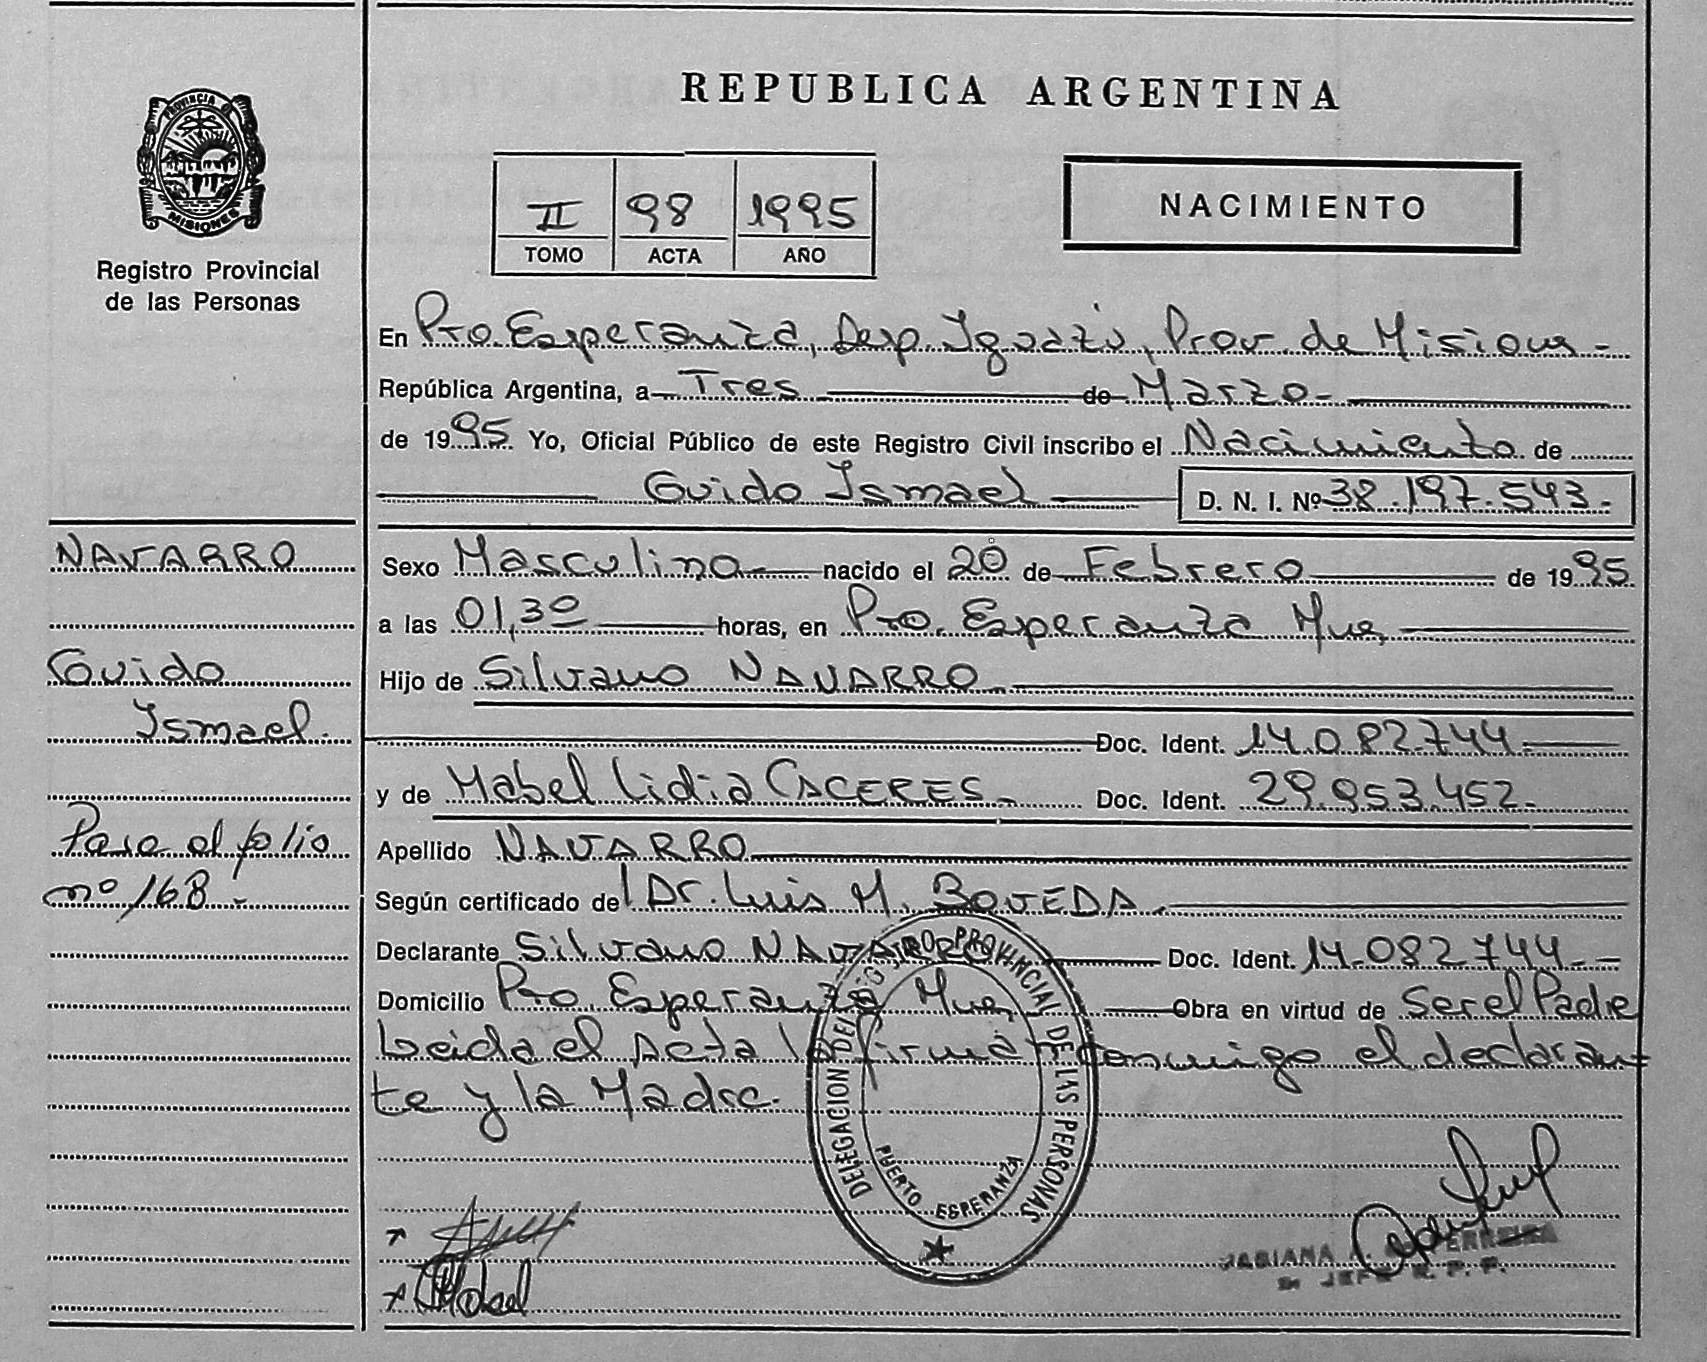 REPUBLICA ARGENTINA
PROVINCIA DE
MISIONES
Registro Provincial
de las Personas
II 98 1995
TOMO ACTA AÑO
NACIMIENTO
En Pto. Esperanza, Dep. Iguazú, Prov. de Misiones -
República Argentina, a Tres de Marzo-
de 1995 Yo, Oficial Público de este Registro Civil inscribo el Nacimiento de
Guido Ismael D. N. I. Nº 38.197.543.-
NAVARRO
Guido
Ismael.
Pase al folio
nº 168.-
Sexo Masculino- nacido el 20 de Febrero de 1995.
a las 01,30 horas, en Pto. Esperanza Mnes
Hijo de Silvano NAVARRO
Doc. Ident. 14.082.744.-
y de Mabel Lidia CACERES- Doc. Ident. 29.953.452.-
Apellido NAVARRO
Según certificado del Dr. Luis M. BOVEDA.
Declarante Silvano NAVARRO Doc. Ident. 14.082.744.-
Domicilio Pto. Esperanza Mnes Obra en virtud de Ser el Padre
Leida el Acta la firman conmigo el declaran-
te y la Madre.
DELEGACION DEL REGISTRO PROVINCIAL DE LAS PERSONAS
PUERTO ESPERANZA
Mabel
FERREIRA
JEFE R. P. P.